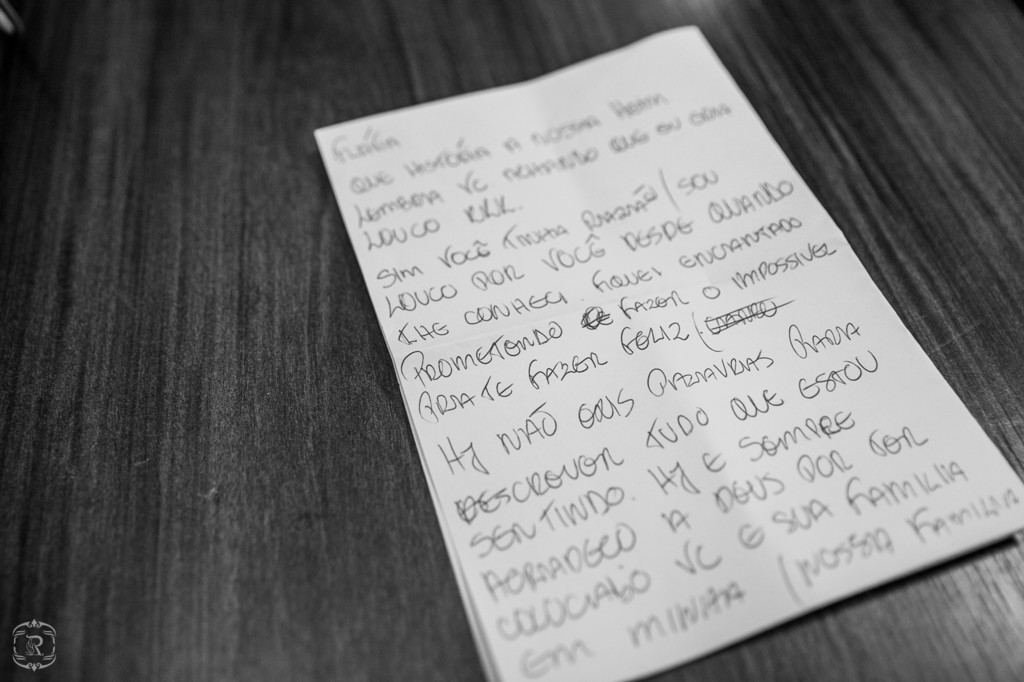 FLÁVIA
QUE HISTÓRIA A NOSSA HEIM
LEMBRA VC. ACHANDO QUE EU ERA
LOUCO KKK.
SIM VOCÊ TINHA RAZÃO / SOU
LOUCO POR VOCÊ DESDE QUANDO
THE CONHECI. FIQUEI ENCANTADO
PROMETENDO FAZER O IMPOSSIVEL
PRA TE FAZER FELIZ (.
HJ NÃO PALAVRAS PARA
DESCREVER TUDO QUE ESTOU
SENTINDO. HJ E SEMPRE
AGRADEÇO A DEUS POR TER
COLOCADO VC E SUA FAMILIA
EM MINHA (NOSSA FAMILIA
R